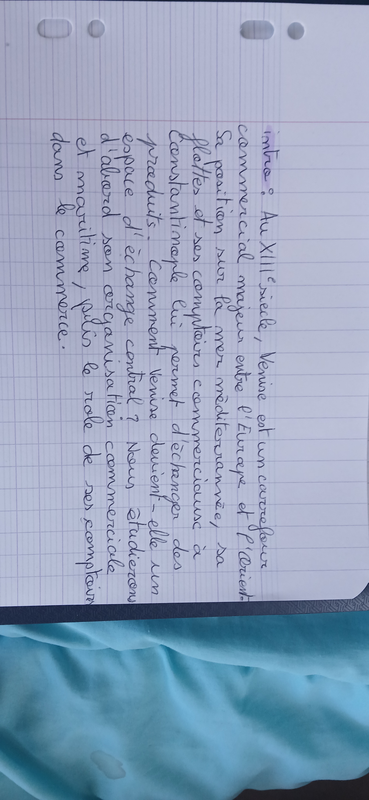 intro : Au XIIIe siècle, Venise est un carrefour
commercial majeur entre l'Europe et l'orient
Sa position sur la mer méditerrannée, sa
flottes et ses comptoirs commerciause à
Constantinople lui permet d'échanger des
produits. Comment Venise devient-elle un
espace d'échange central ? Nous étudierons
d'abord son organisation commerciale
et maritime, puis le role de ses comptoirs
dans le commerce.